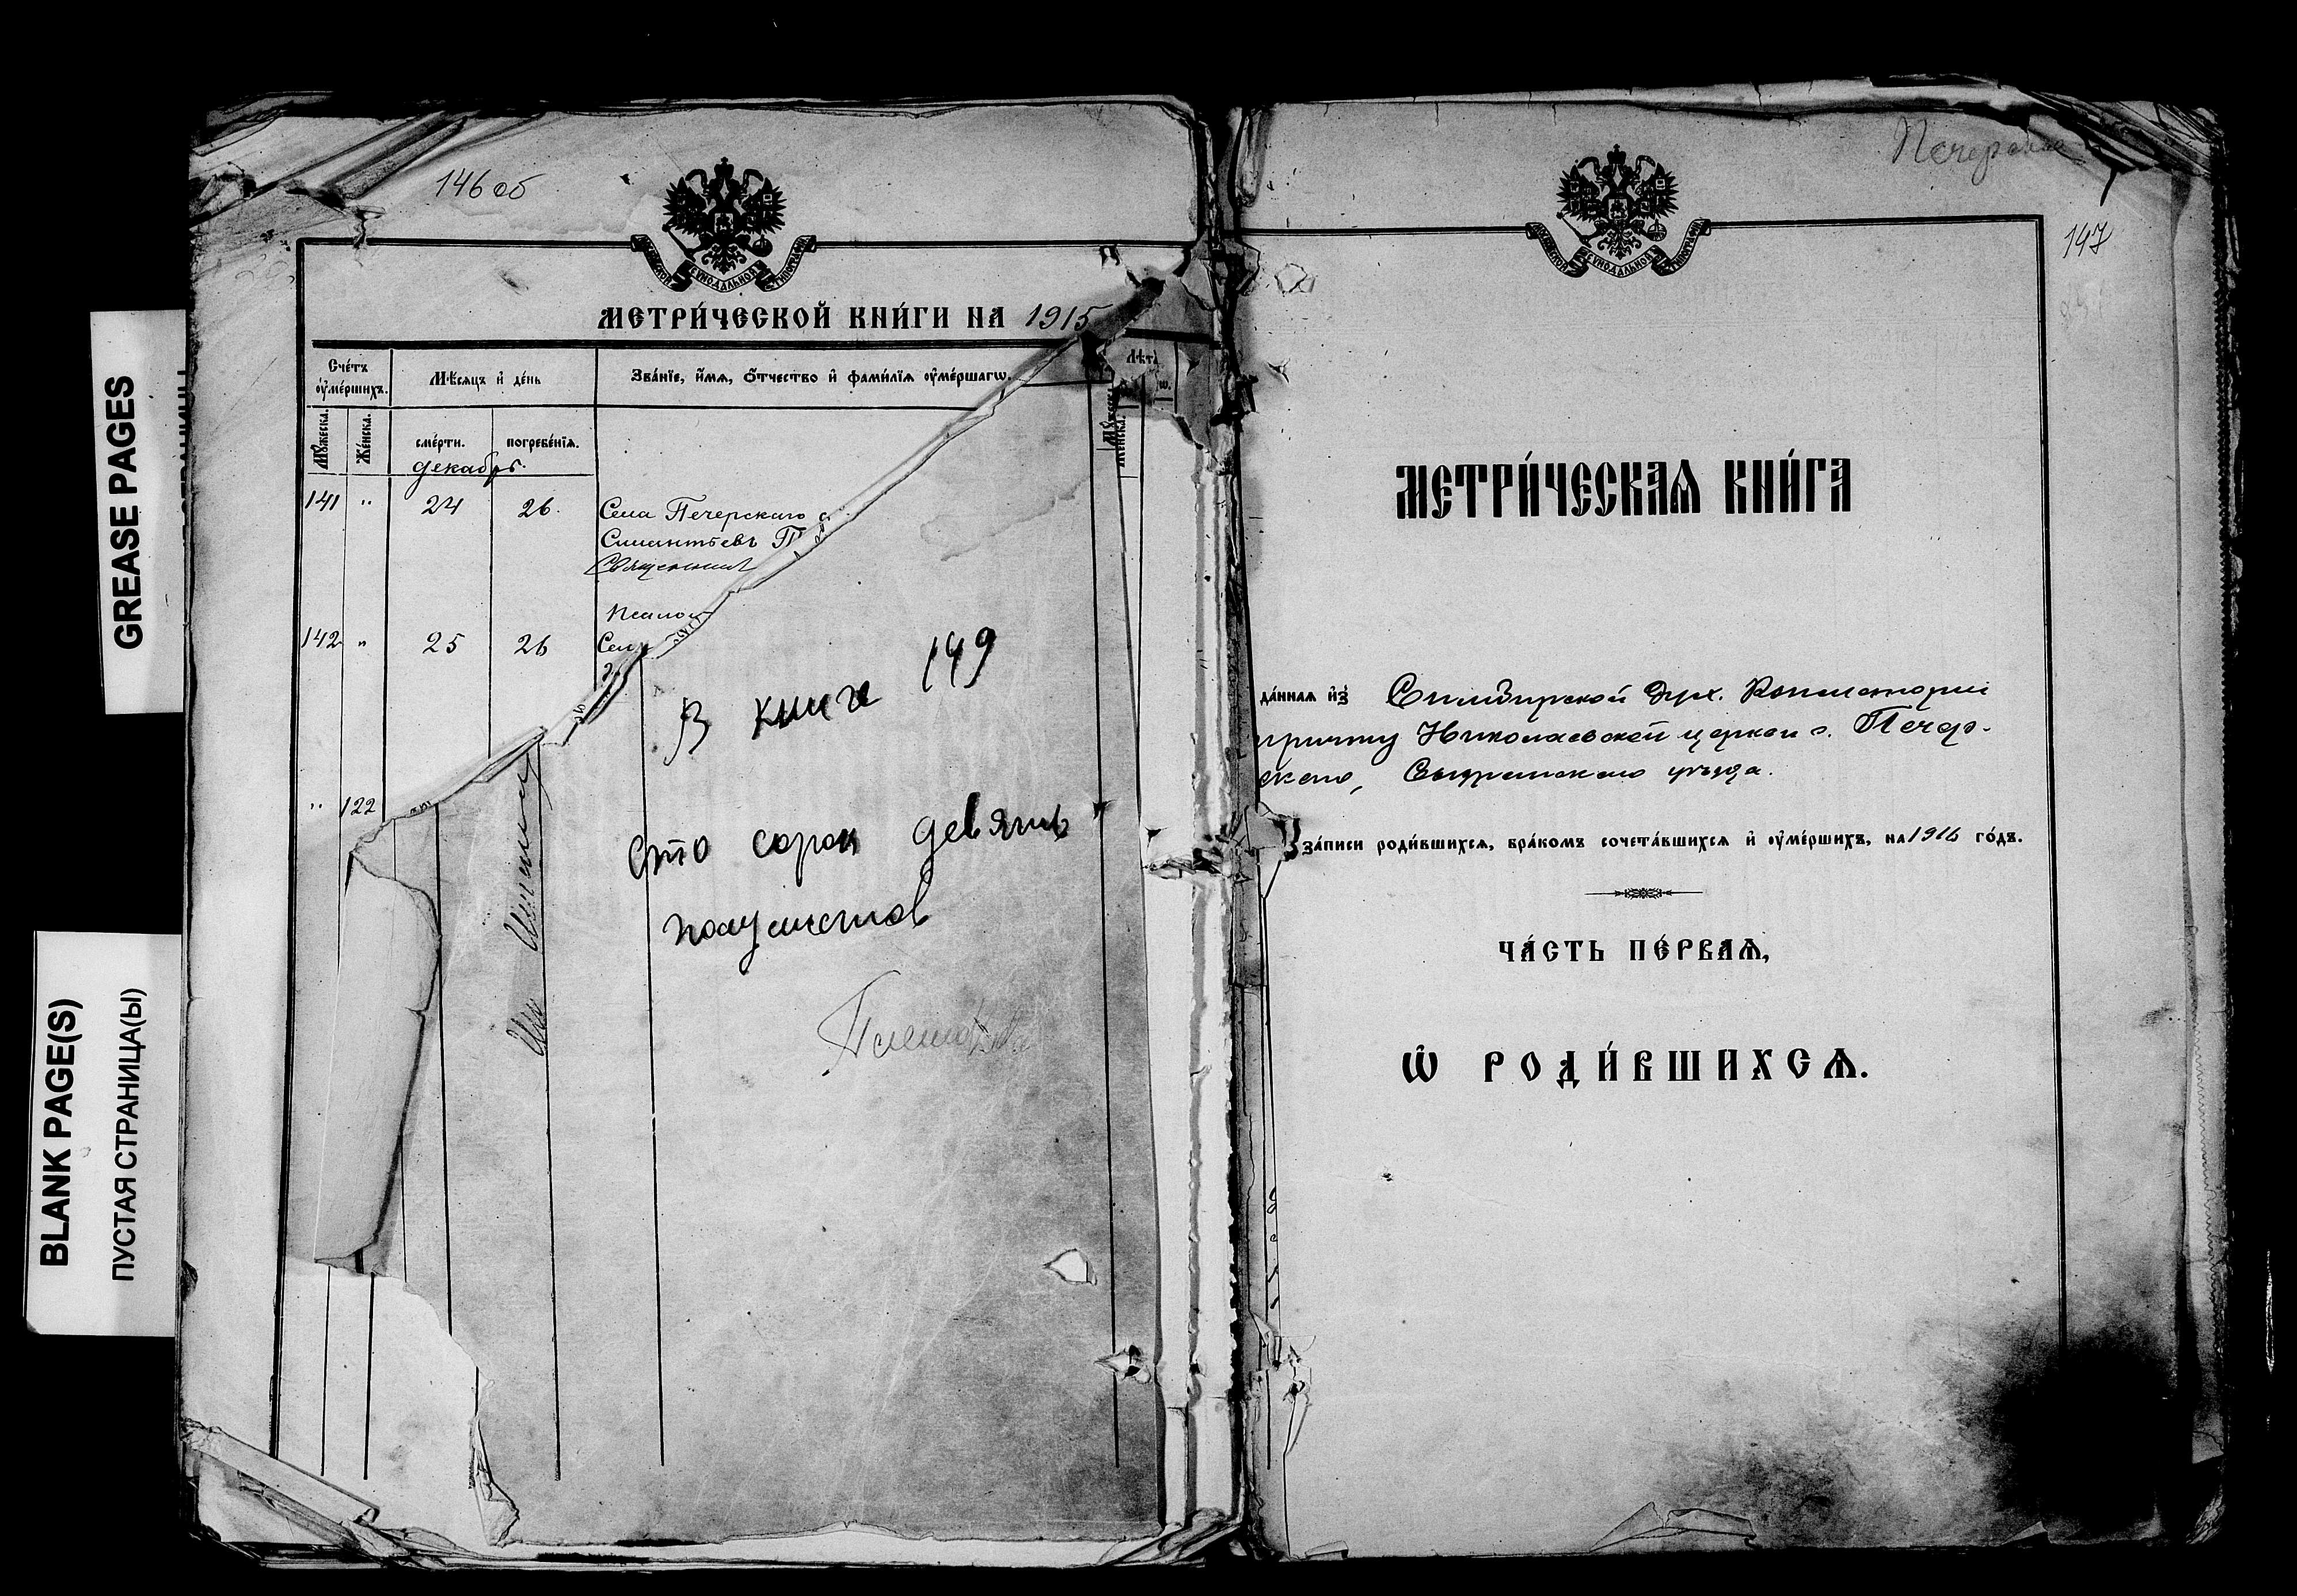 GREASE PAGES
BLANK PAGE(S)
ПУСТАЯ СТРАНИЦА(Ы)
146 об
МЕТРИ́ЧЕСКОЙ КНИ́ГИ НА 1915
Сче́тъ ᲂу҆ме́ршихъ.
Мѣ́сяцъ и҆ де́нь
Зва́нїе, и҆́мя, ѻ҆́тчество и҆ фами́лїя ᲂу҆ме́ршагѡ.
Лѣ́та
Мꙋ́жеска.
Же́нска.
сме́рти.
погребе́нїя.
Мꙋ́жеска.
Же́нска.
декабрь.
141 " 24 26. Села Печерскаго с
Силантьевъ П
Священник
Псалом
142 " 25 26 Сел
" 122
В книге 149
Сто сорок девять
полулистов
Печерское
147
МЕТРИ́ЧЕСКАѦ КНИ́ГА
да́нная и҆з̾ Симбирской Дух. Консисторіи
причту Николаевской церкви с. Печер-
скаго, Сызранскаго уѣзда.
за́писи роди́вшихся, бра́комъ сочета́вшихся и҆ ᲂу҆ме́ршихъ, на 1916 го́дъ.
ЧА́СТЬ ПЕ́РВАѦ,
Ѡ҆ РОДИ́ВШИХСѦ.